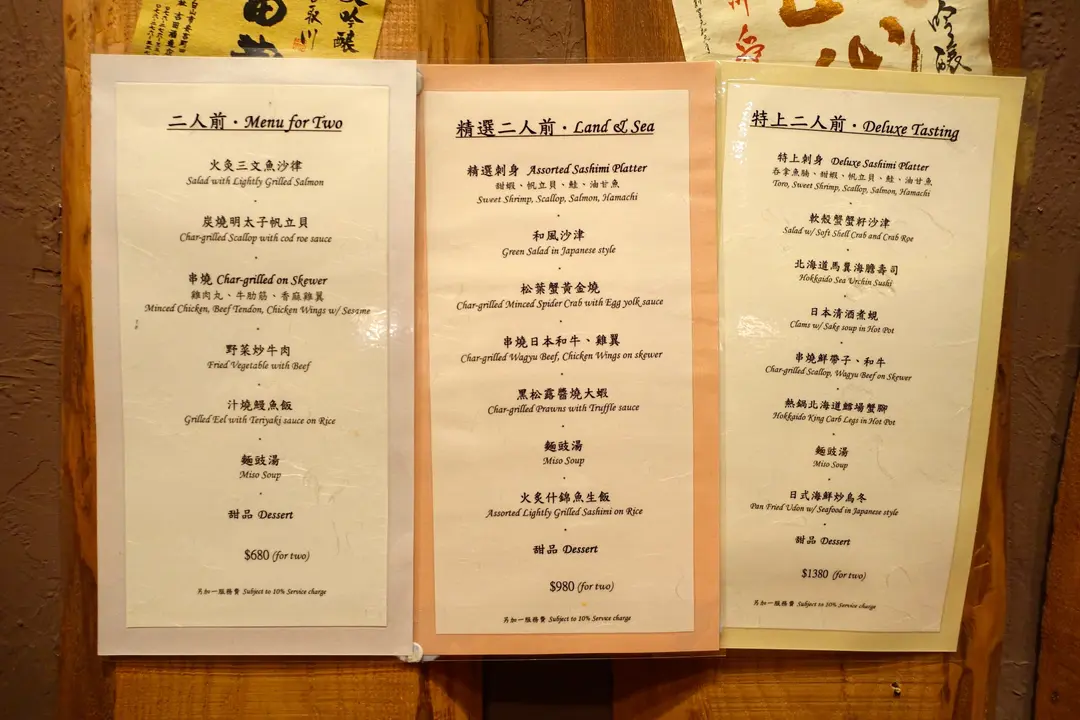 大吟醸
二人前・Menu for Two
火炙三文魚沙律
Salad with Lightly Grilled Salmon
炭燒明太子帆立貝
Char-grilled Scallop with cod roe sauce
串燒 Char-grilled on Skewer
雞肉丸、牛肋筋、香麻雞翼
Minced Chicken, Beef Tendon, Chicken Wings w/ Sesame
野菜炒牛肉
Fried Vegetable with Beef
汁燒鰻魚飯
Grilled Eel with Teriyaki sauce on Rice
麵豉湯
Miso Soup
甜品 Dessert
$680 (for two)
另加一服務費 Subject to 10% Service charge
精選二人前・Land & Sea
精選刺身 Assorted Sashimi Platter
甜蝦、帆立貝、鮭、油甘魚
Sweet Shrimp, Scallop, Salmon, Hamachi
和風沙津
Green Salad in Japanese style
松葉蟹黃金燒
Char-grilled Minced Spider Crab with Egg yolk sauce
串燒日本和牛、雞翼
Char-grilled Wagyu Beef, Chicken Wings on skewer
黑松露醬燒大蝦
Char-grilled Prawns with Truffle sauce
麵豉湯
Miso Soup
火炙什錦魚生飯
Assorted Lightly Grilled Sashimi on Rice
甜品 Dessert
$980 (for two)
另加一服務費 Subject to 10% Service charge
吟醸
特上二人前・Deluxe Tasting
特上刺身 Deluxe Sashimi Platter
吞拿魚腩、甜蝦、帆立貝、鮭、油甘魚
Toro, Sweet Shrimp, Scallop, Salmon, Hamachi
軟殼蟹蟹籽沙津
Salad w/ Soft Shell Crab and Crab Roe
北海道馬糞海膽壽司
Hokkaido Sea Urchin Sushi
日本清酒煮蜆
Clams w/ Sake soup in Hot Pot
串燒鮮帶子、和牛
Char-grilled Scallop, Wagyu Beef on Skewer
熱鍋北海道鱈場蟹腳
Hokkaido King Carb Legs in Hot Pot
麵豉湯
Miso Soup
日式海鮮炒烏冬
Pan Fried Udon w/ Seafood in Japanese style
甜品 Dessert
$1380 (for two)
另加一服務費 Subject to 10% Service charge